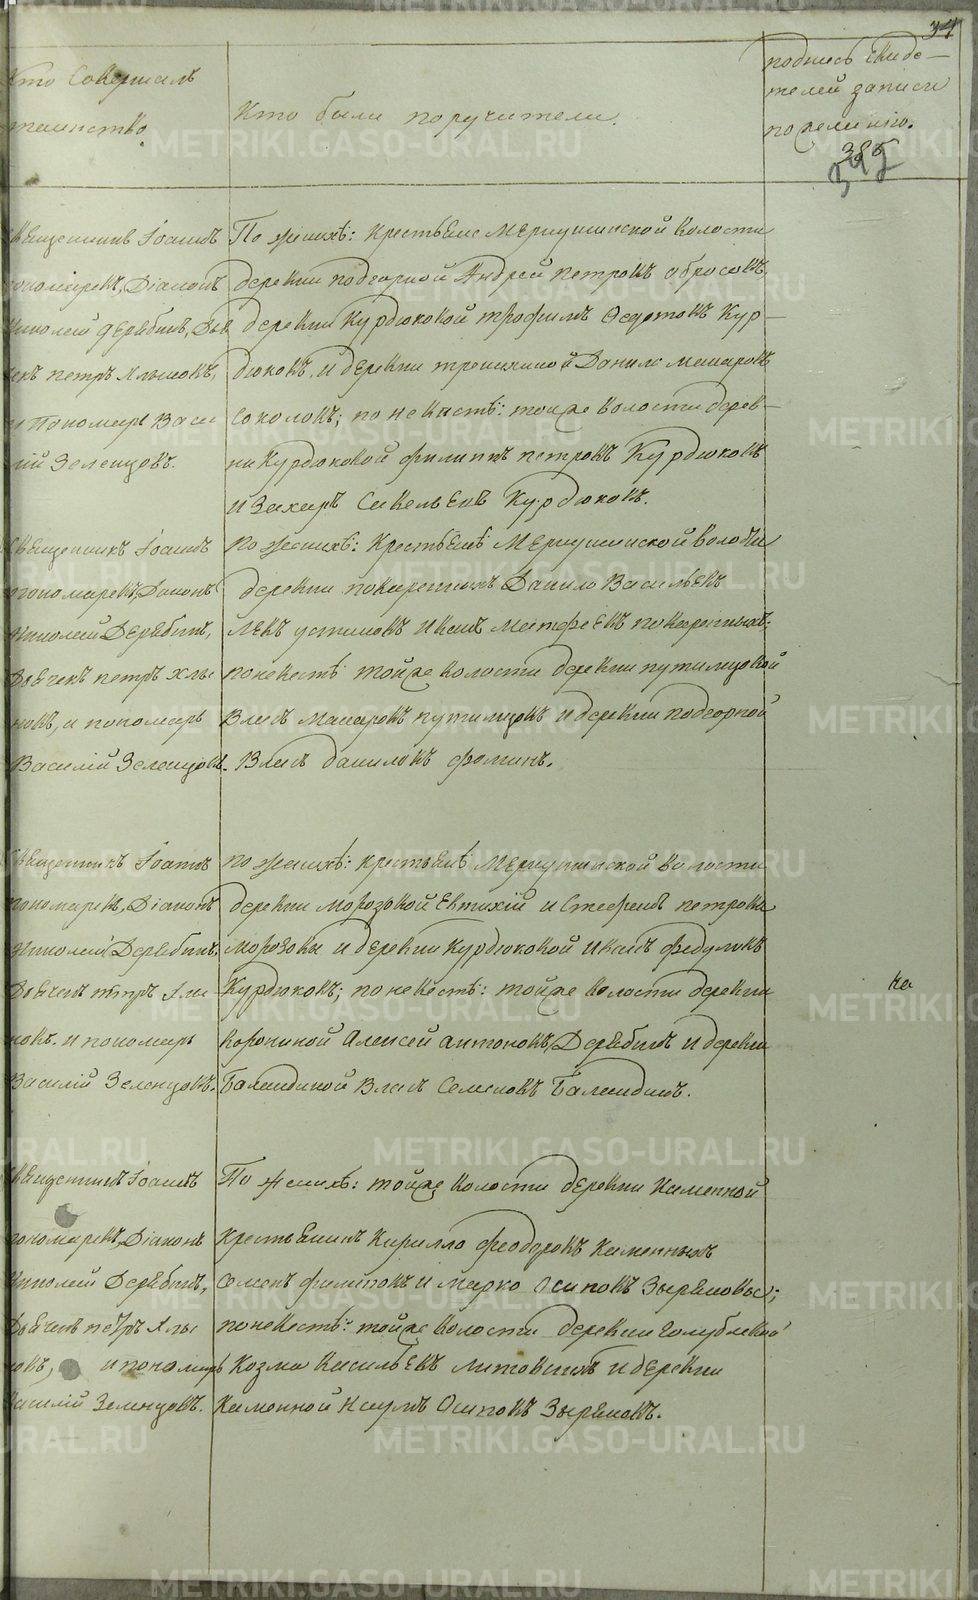 34
Кто Совершалъ
таинство.
Кто были поручители.
подпись свиде–
телей записи
по желанію.
385
Священникъ Іоаннъ
Пономаревъ, Діаконъ
Николай Дерябинъ, Дья
чекъ петръ Хлыновъ,
и Пономарь Васи
лій Зеленцовъ.
По женихѣ: крестьяне Меркушинской волости
деревни подгорной Андрей петровъ обросовъ,
деревни Курдюковой трофимъ Федотовъ Кур–
дюковъ, и деревни трошкиной Данило макаровъ
Соколовъ; по невѣстѣ: тойже волости дерев–
ни Курдюковой филиппъ петровъ Курдюковъ
и Захаръ Савельевъ Курдюковъ.
Священникъ Іоаннъ
Пономаревъ, Діаконъ
Николай Дерябинъ,
Дьячекъ петръ Хлы
новъ, и пономарь
Василій Зеленцовъ.
по женихѣ: Крестьянѣ Меркушинской волости
деревни Данило Васильевъ
Иванъ Матфеевъ
по невѣстѣ тойже волости деревни путимцовой
Власъ Макаровъ путимцовъ и деревни подгорной
Власъ даниловъ фоминъ.
Священникъ Іоаннъ
Пономаревъ, Діаконъ
Николай Дерябинъ,
Дьячекъ петръ Хлы
новъ. и пономарь
Василій Зеленцовъ.
по женихѣ: крестьянѣ Меркушинской волости
деревни Морозовой Евтихій и Стефанъ петровы
Морозовы и деревни Курдюковой Иванъ федуловъ
Курдюковъ; по невѣстѣ: тойже волости деревни
Коропиной Алексей антоновъ Дерябинъ и деревни
Баландиной Власъ Семеновъ Баландинъ.
на
Священникъ Іоаннъ
Пономаревъ, Діаконъ
Николай Дерябинъ,
Дьячекъ петръ Хлы
новъ, и пономарь
Василій Зеленцовъ.
По женихѣ: тойже волости деревни Каменной
крестьянинъ Кирилло феодоровъ Каменныхъ
Семенъ филиповъ и марко Осиповъ Зыряновы;
по невѣстѣ: тойже волости деревни голубевой
Козма Васильевъ и деревни
Каменной Наумъ Осиповъ Зыряновъ.
METRIKI.GASO-URAL.RU